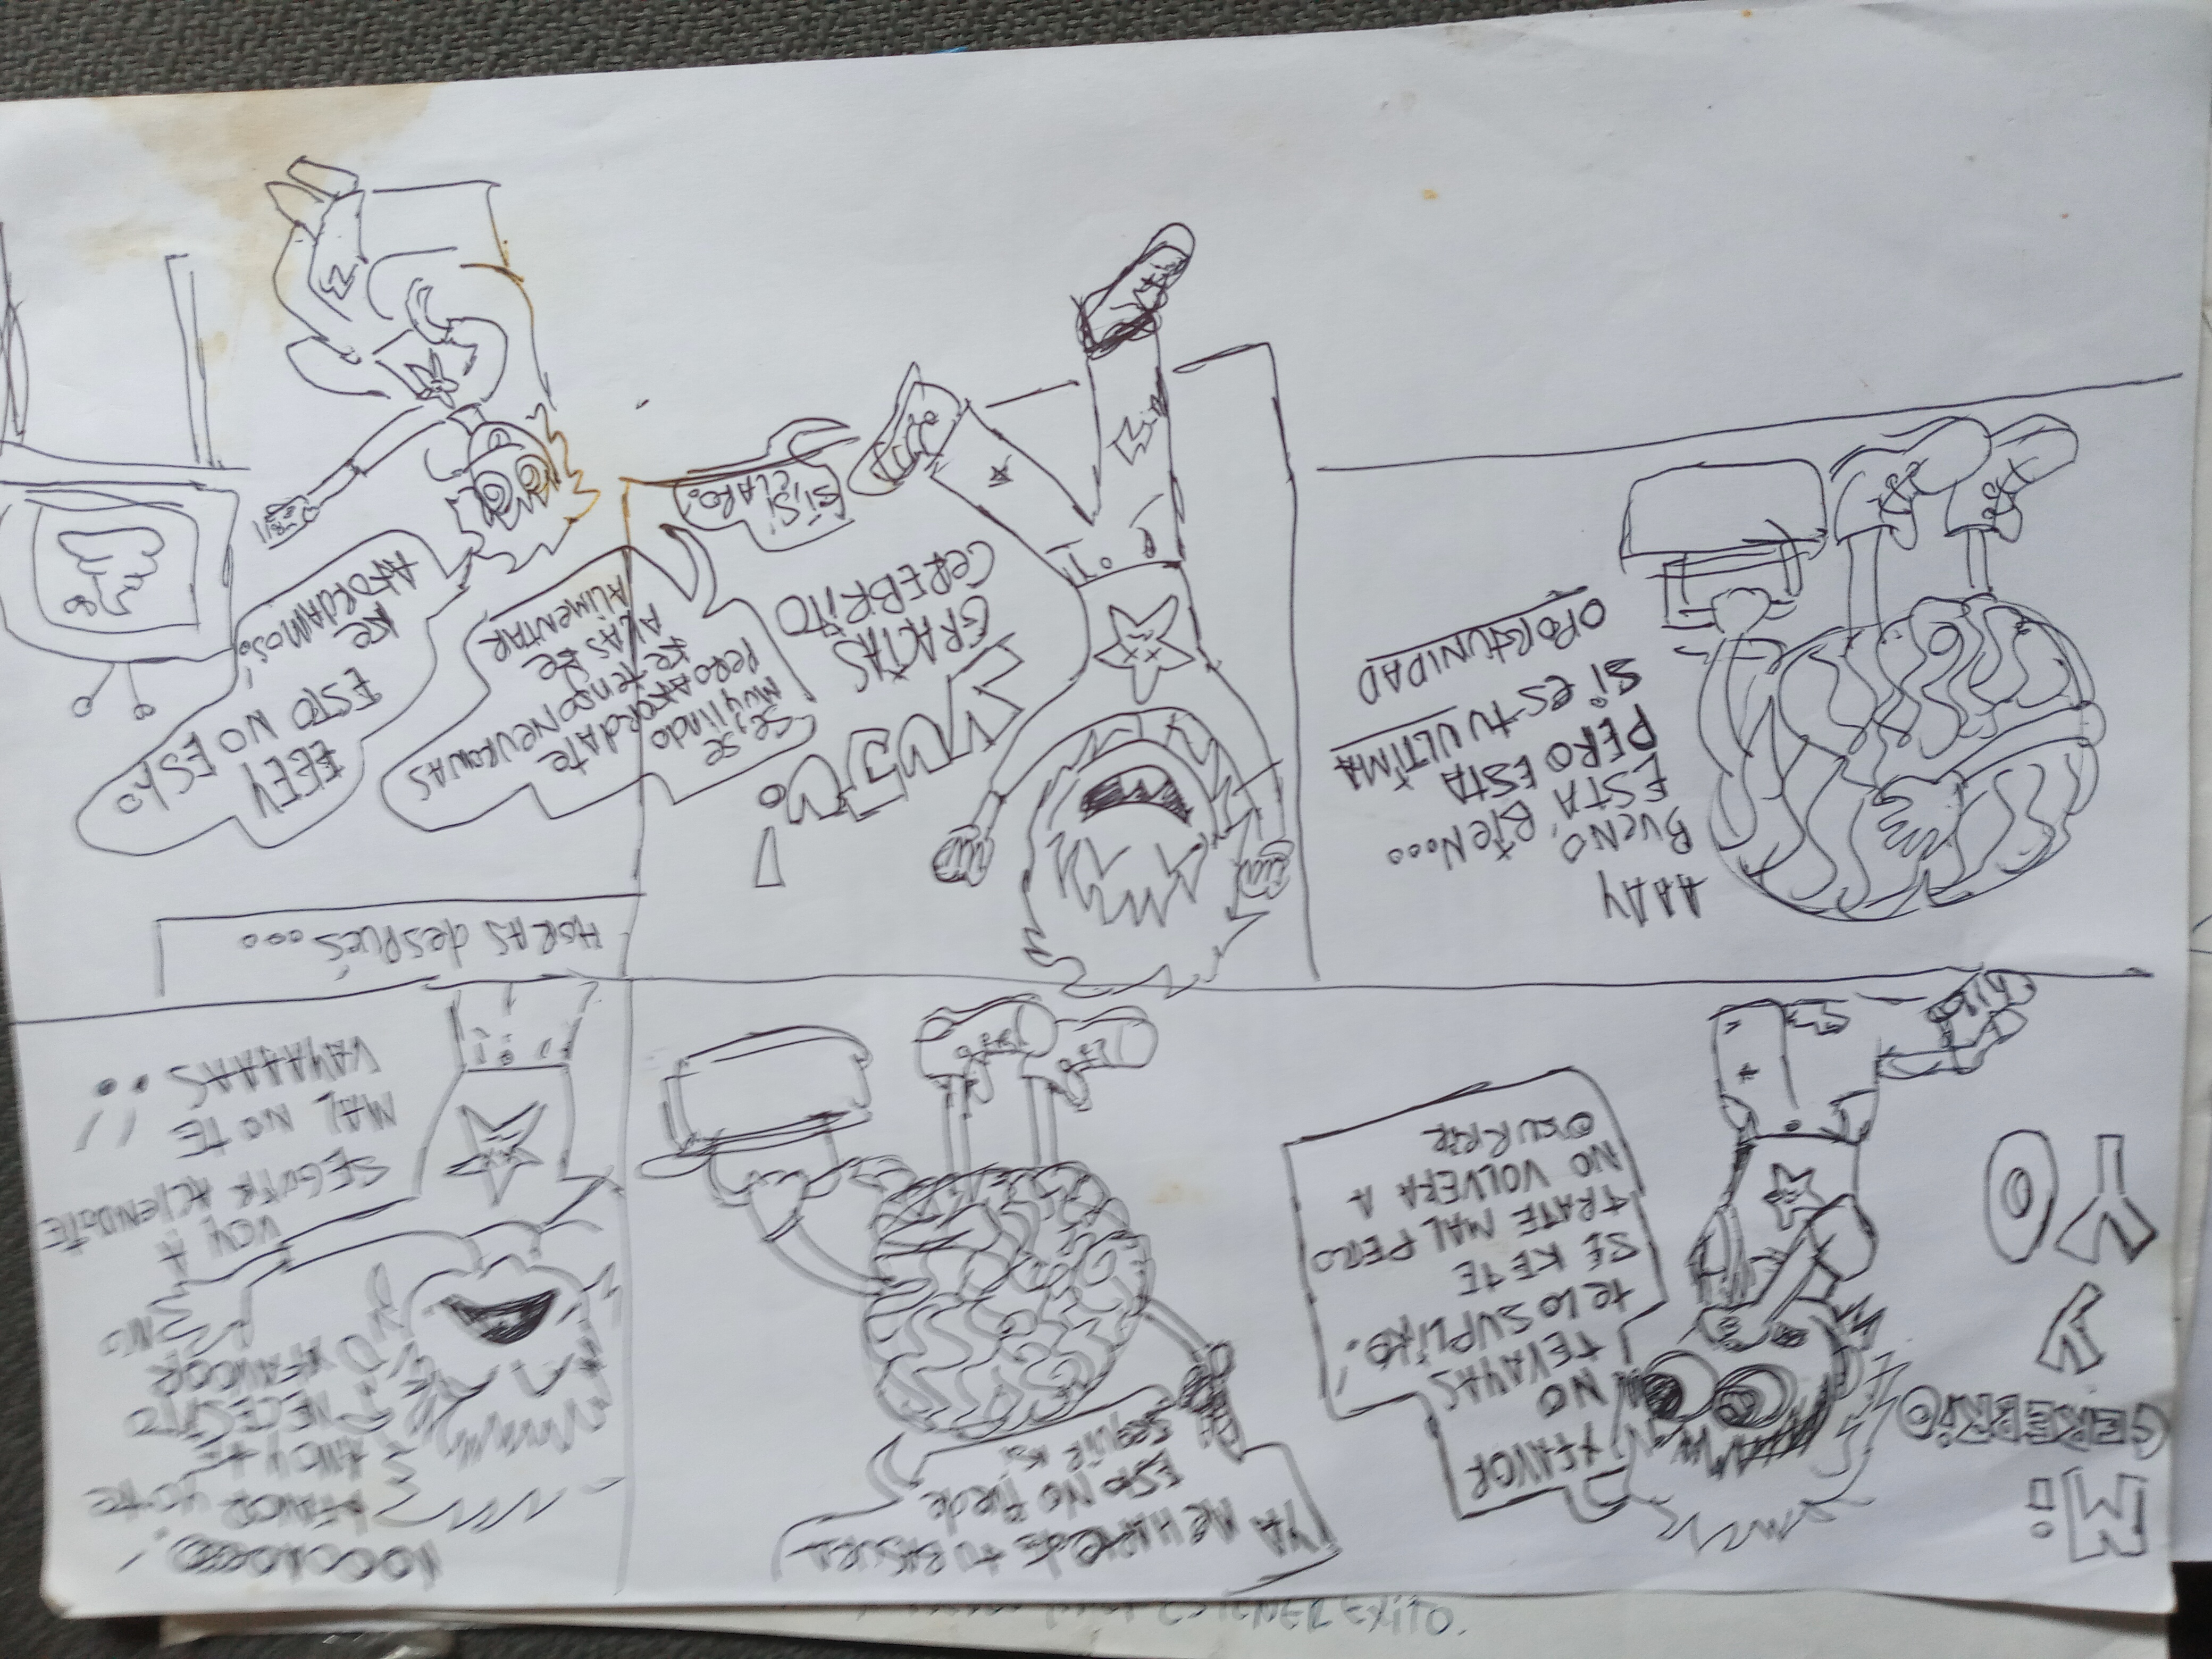 Mi
CEREBRiO
y
YO
XFAVOR
NO
TEVAYAS
te LO SUPLIKO!
SE KE TE
TRATE MAL PERO
NO VOLVERA A
OSURRIR
YA ME HARTE de tu BASURA
ESTO NO PUEDE
SEGUIR ASI
XFAVOR YO TE
AMO Y TE
NECESITO
XFAVOOR
NO
VOY A
SEGUIR ACIENDOTE
MAL NO TE
VAYAAAAS!!
AAAY
BUENO,
ESTÁ BiEN...
PERO ESTA
Si ES tu ULTIMA
OPORTUNIDAD
YUJU!
GRACIAS
CEREBRITO
SE, SE
MUY lindo
PERO AKORdAtE
KE tENGO NEURONAS
A LAS KE
ALIMENTAR
Sí, Sí
CLARO!
HORAS dESPUÉS...
EEEY
ESTO NO ES LO
KE
AKORDAMOS!